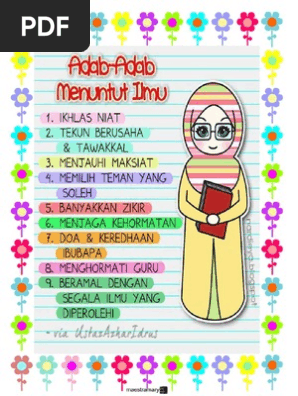 PDF
Adab-Adab
Menuntut Ilmu
1. IKHLAS NIAT
2. TEKUN BERUSAHA
& TAWAKKAL
3. MENJAUHI MAKSIAT
4. MEMILIH TEMAN YANG
SOLEH
5. BANYAKKAN ZIKIR
6. MENJAGA KEHORMATAN
7. DOA & KEREDHAAN
IBUBAPA
8. MENGHORMATI GURU
9. BERAMAL DENGAN
SEGALA ILMU YANG
DIPEROLEHI
~ via UstazAzharIdrus